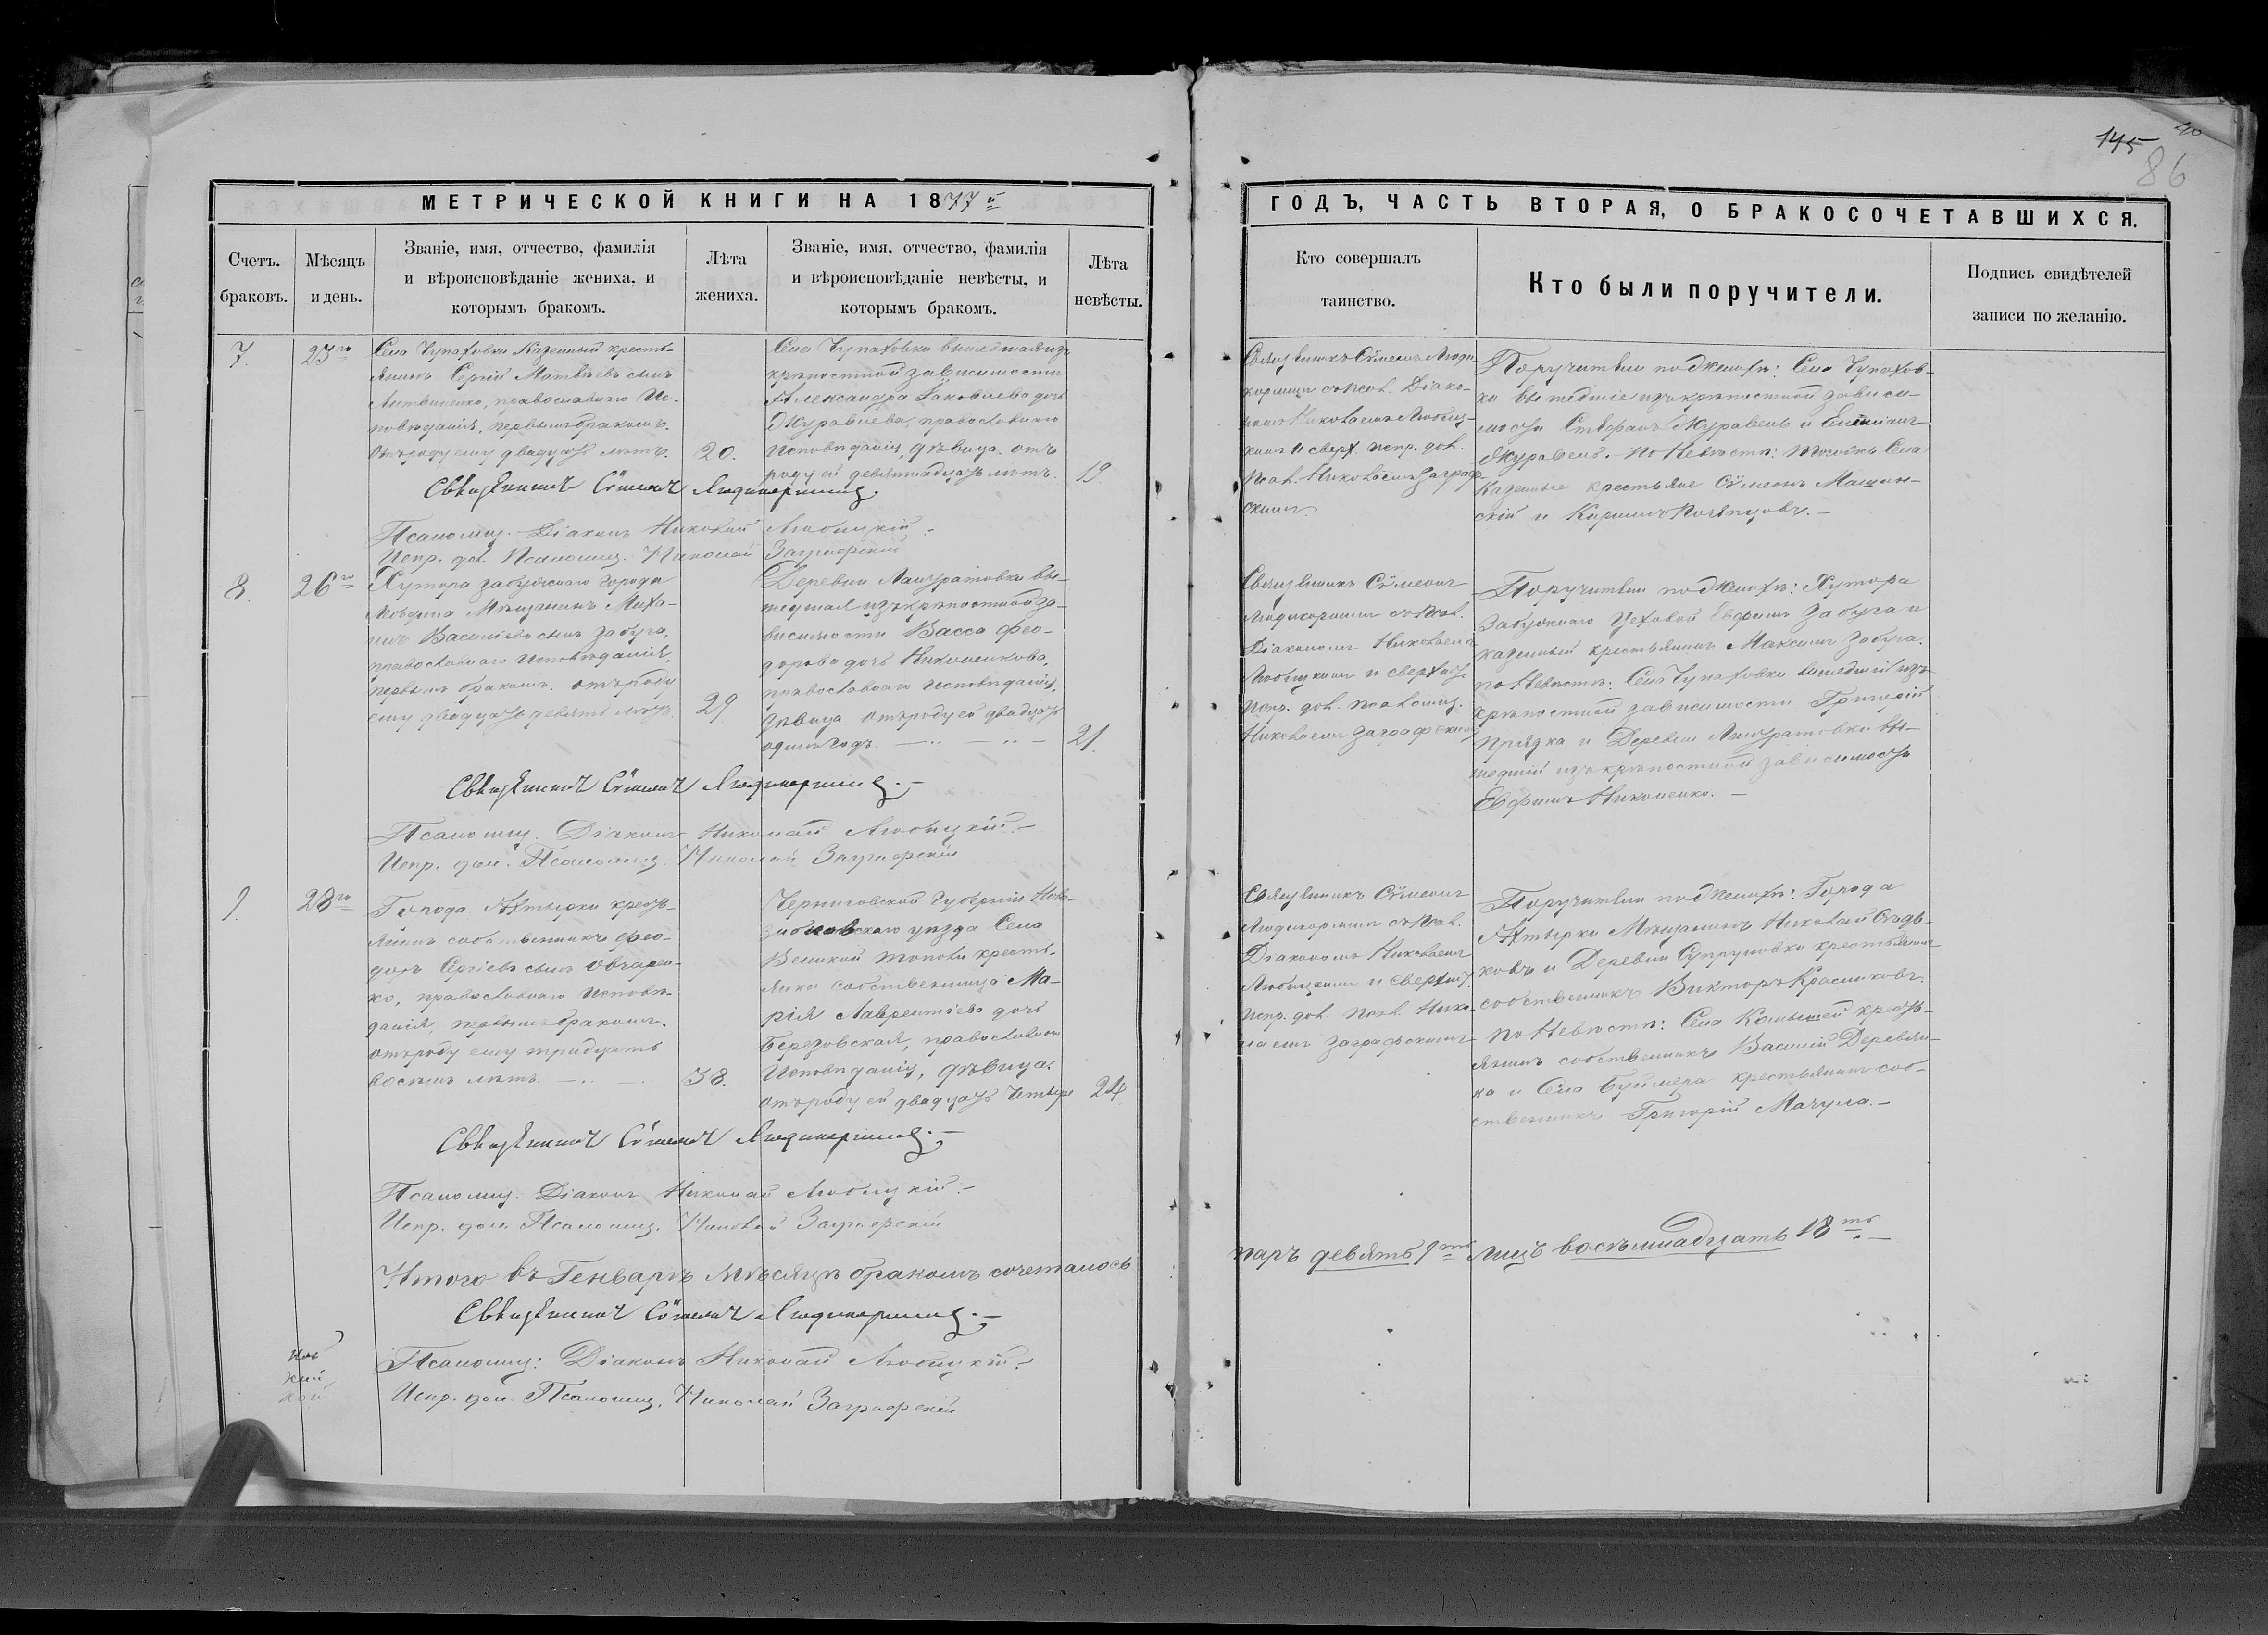 145
86
МЕТРИЧЕСКОЙ КНИГИ НА 1877й
Счетъ. браковъ.
Мѣсяцъ и день.
Званіе, имя, отчество, фамилія
и вѣроисповѣданіе жениха, и
которымъ бракомъ.
Лѣта жениха.
Званіе, имя, отчество, фамилія
и вѣроисповѣданіе невѣсты, и
которымъ бракомъ.
Лѣта невѣсты.
7.
23го
Села Чупаховки Казенный кресть-
янинъ Сергій Матвѣевъ сынъ
Литвиненко, православнаго Ис-
повѣданія, первымъ бракомъ.
Отъ роду ему двадцать лѣтъ.
20.
Села Чупаховки вышедшая изъ
крѣпостной зависимости
Александра Іаковлева дочь
Журавлева, православнаго
Исповѣданія, дѣвица. отъ
роду ей девятнадцать лѣтъ.
19.
Священникъ Сѵмеонъ
Псаломщ. Діаконъ Николай Любицкій.
Испр. дол. Псаломщ. Николай Заграфскій
8.
26го
Хутора Забужнаго города
Лебедина Мѣщанинъ
Василіевъ сынъ Забуга,
православнаго Исповѣданія,
первымъ бракомъ. отъ роду
ему двадцать девять лѣтъ.
29.
Деревни вы-
шедшая изъ крѣпостной за-
висимости Васса Фео-
дорова дочь Никоненкова,
православнаго исповѣданія,
дѣвица. Отъ роду ей двадцать
одинъ годъ.
21.
Священникъ Сѵмеонъ
Псаломщ. Діаконъ Николай Любицкій.
Испр. дол. Псаломщ. Николай Заграфскій
9.
28го
Города Ахтырки кресть-
янинъ собственникъ Фео-
доръ Сергіевъ сынъ Овчарен-
ко, православнаго Исповѣ-
данія, первымъ бракомъ.
отъ роду ему тридцать
восемь лѣтъ.
38.
Черниговской Губерніи Ново-
зыбковскаго уѣзда Села
Великой Топали кресть-
янка собственница Ма-
рія Лаврентіева дочь
Березовская, православнаго
Исповѣданія, дѣвица.
Отъ роду ей двадцать четыре
24.
Священникъ Сѵмеонъ
Псаломщ. Діаконъ Николай Любицкій.
Испр. дол. Псаломщ. Николай Заграфскій
Итого въ Генварѣ мѣсяцѣ бракомъ сочеталось
Священникъ Сѵмеонъ
Псаломщ: Діаконъ Николай Любицкій.
Испр. дол. Псаломщ. Николай Заграфскій
ГОДЪ, ЧАСТЬ ВТОРАЯ, О БРАКОСОЧЕТАВШИХСЯ.
Кто совершалъ
таинство.
Кто были поручители.
Подпись свидѣтелей
записи по желанію.
Священникъ Сѵмеонъ
съ Псал. Діако-
номъ Николаемъ Любиц-
кимъ и сверх. испр. дол.
Псал. Николаемъ Заграф-
скимъ.
Поручители по Женихѣ: Села Чупахов-
ки вышедшіе изъ крѣпостной зависи-
мости Стефанъ Журавель и
Журавель. По Невѣстѣ: того же Села
Казенные крестьяне Сѵмеонъ Машин-
скій и
Священникъ Сѵмеонъ
съ Псал.
Діакономъ Николаемъ
Любицкимъ и сверхшт.
Испр. дол. псаломщ.
Николаемъ Заграфскимъ
Поручители по Женихѣ: Хутора
Забужнаго Цеховой Евфимъ Забуга и
казенный крестьянинъ Максимъ Забуга.
по Невѣстѣ: Села Чупаховки вышедшій изъ
крѣпостной зависимости Григорій
Прядка и Деревни вы-
шедшій изъ крѣпостной зависимости
Евфимъ Никоненко.
Священникъ Сѵмеонъ
съ Псал.
Діакономъ Николаемъ
Любицкимъ и сверхшт.
Испр. дол. Псал. Нико-
лаемъ Заграфскимъ
Поручители по Женихѣ: Города
Ахтырки Мѣщанинъ Николай
и Деревни Супруновки крестьянинъ
собственникъ Викторъ Красниковъ.
по Невѣстѣ: Села Камышей кресть-
янинъ собственникъ Василій Деревян-
ка и Села Буймера крестьянинъ соб-
ственникъ Григорій Мачула.
паръ девять 9ть лицъ восемнадцать 18ть